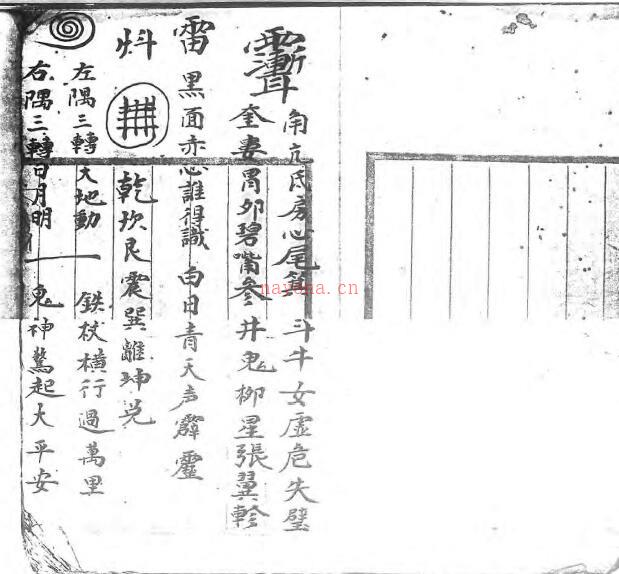 角亢氐房心尾箕 斗牛女虛危失璧
奎婁胃夘碧嘴參井鬼柳星張翼軫
雷 黑面赤心誰得識 白日青天声霹靈
炓 乾坎艮震巽離坤兌
左隅三轉大地動 鉄杖橫行過萬里
右隅三轉日月明 鬼神驚起大平安
nayona.cn